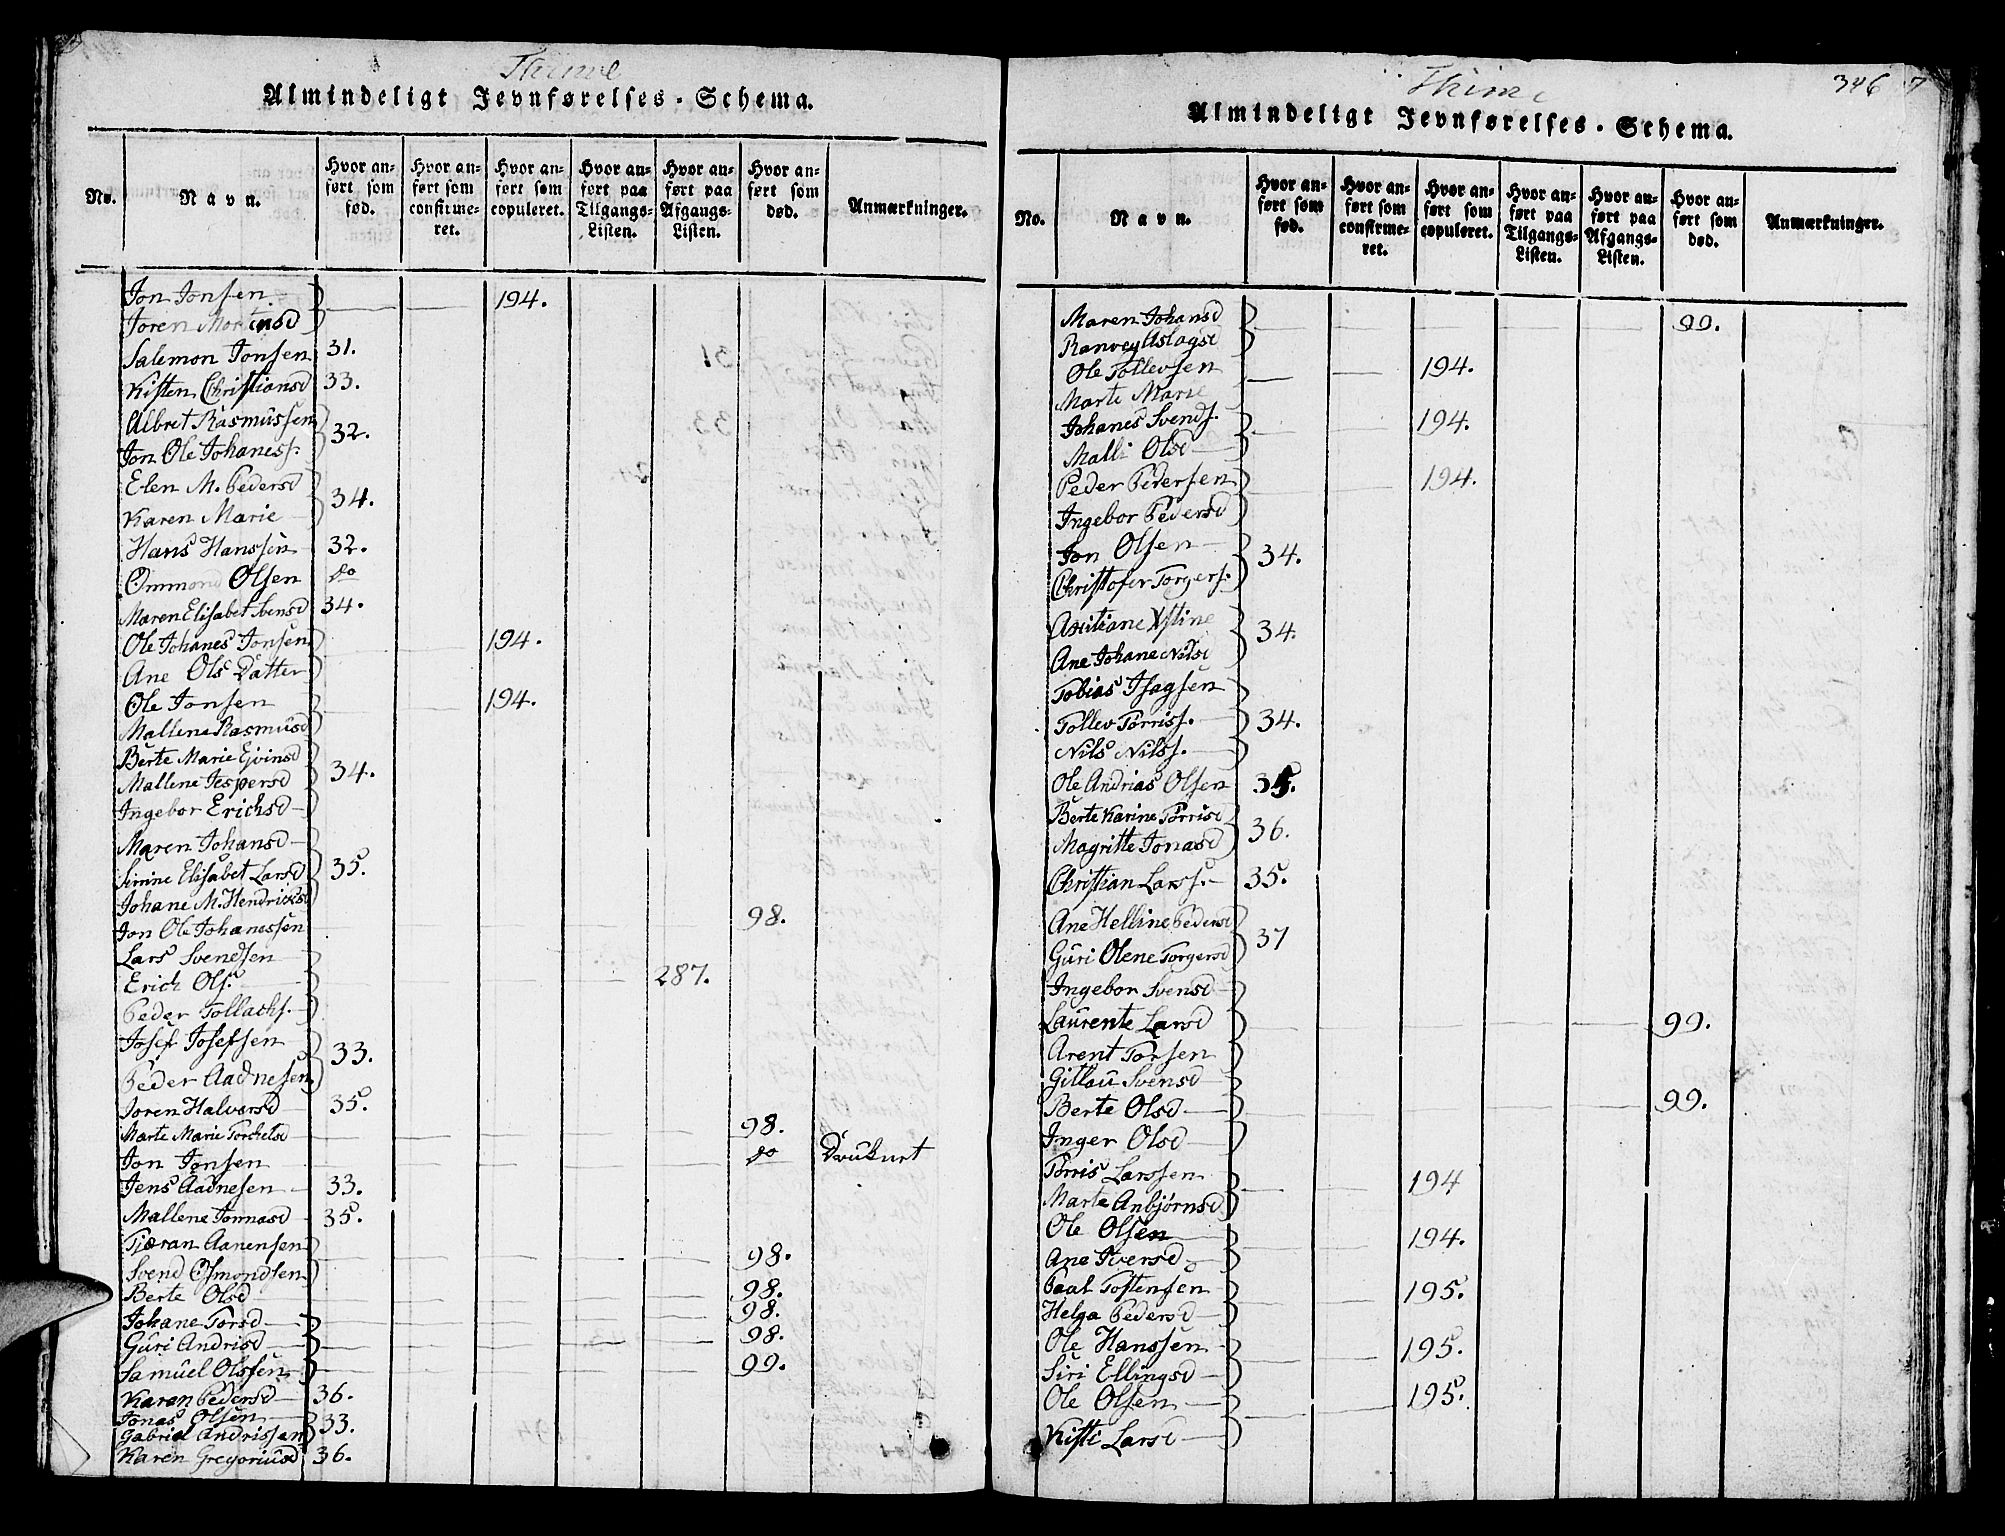 Thime
Almindeligt Jevnførelses-Schema.
No. Navn. Hvor anført som fød. Hvor anført som confirmeret. Hvor anført som copuleret. Hvor anført paa Tilgangs-Listen. Hvor anført paa Afgangs-Listen. Hvor anført som død. Anmærkninger.
Jon Jonsen 194.
Joren Mortensd
Salemon Jonsen 31.
Kisten Christiansd 33.
Albret Rasmussen 32.
Jon Ole Johaness.
Elen M. Pedersd 34.
Karen Marie
Hans Hanssen 32.
Ommond Olsen do
Maren Elisabet Svensd 34.
Ole Johanes Jonsen 194.
Ane Ols Datter
Ole Jonsen 194.
Mallene Rasmusd
Berte Marie Ejvinsd
Mallene Jespersd 34.
Ingebor Erichsd
Maren Johansd
Sirrine Elisabet Larsd 35.
Johane M. Hendrichsd
Jon Ole Johanessen 98.
Lars Svendsen
Erich Ols. 287.
Peder Tollachs.
Josef Josefsen 33.
Peder Aadnesen
Joren Halversd 35.
Marte Marie Torchelsd 98.
Jon Jonsen do Druknet
Jens Aadnesen 33.
Mallene Jonnasd 35.
Tjæran Aanensen 98.
Svend Osmondsen
Berte Olsd 98.
Johane Torsd 98.
Guri Andrisd 98.
Samuel Olssen 99.
Karen Pedersd 36.
Jonas Olsen 33.
Gabriel Andrissen
Karen Gregoriusd 36.
Thime 346
Almindeligt Jevnførelses-Schema.
No. Navn. Hvor anført som fød. Hvor anført som confirmeret. Hvor anført som copuleret. Hvor anført paa Tilgangs-Listen. Hvor anført paa Afgangs-Listen. Hvor anført som død. Anmærkninger.
Maren Johansd 99.
Ranvey Aslagsd
Ole Tollevsen 194.
Marte Marie
Johanes Svends. 194.
Malli Olsd
Peder Pedersen 194.
Ingebor Pedersd
Jon Olsen 34.
Christofer Torgers.
Axitiane Xstine 34.
Ane Johane Nilsd
Tobias Isagsen
Tollev Torriss. 34.
Nils Nilss.
Ole Andrias Olsen 35.
Berte Karine Torrisd 36.
Magritte Jonasd
Christian Larss. 35.
Ane Helline Pedersd 37
Guri Olene Torgersd
Ingebor Svensd
Laurente Larsd 99.
Arent Torsen
Gitlau Svensd
Berte Olsd 99.
Inger Olsd
Torris Larssen 194
Marta Anbjørnsd
Ole Olsen 194.
Ane Iversd
Paal Tostensen 195.
Helga Pedersd
Ole Hanssen 195.
Siri Ellingsd
Ole Olsen 195.
Kisti Larsd